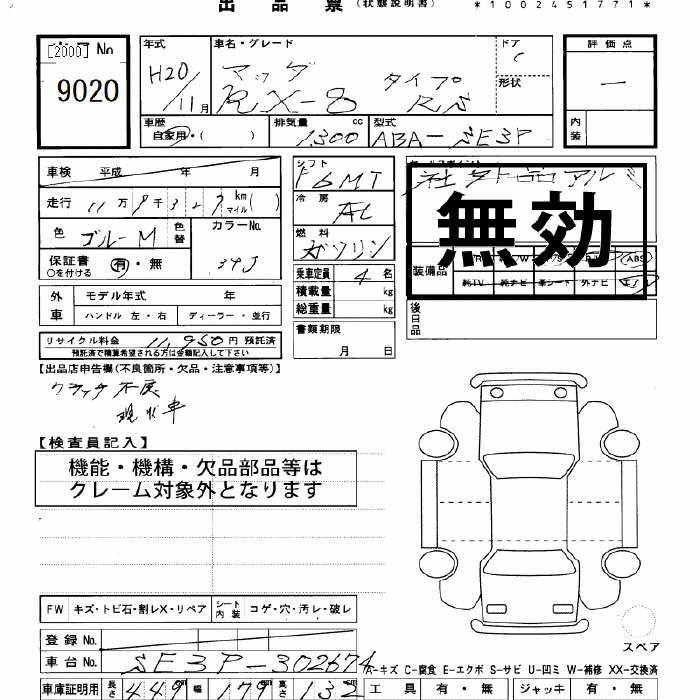 出品票 (状態説明書) *1002451771*
[2000] No
9020
年式 H20/11月
車名・グレード マツダ RX-8 タイプRS
ドア
形状
評価点 一
内装
車歴 自家用・( )
排気量 1,300 cc
型式 ABA-SE3P
車検 平成 年 月
走行 11万9千 km(マイル)( )
色 ブルーM 色替
カラーNo. 34J
保証書 ○を付ける 有・無
シフト F6MT
冷房 AC
燃料 ガソリン
乗車定員 4名
積載量 kg
総重量 kg
書類期限 月 日
セールスポイント
無効
装備品 ABS
純TV 純ナビ 革シート 外ナビ
後日品
外車 モデル年式 年
ハンドル 左・右 ディーラー・並行
リサイクル料金 11,950円 預託済
預託済で積算希望される方は金額記入して下さい
【出品店申告欄(不良箇所・欠品・注意事項等)】
クラッチ不良
現状車
【検査員記入】
機能・機構・欠品部品等は
クレーム対象外となります
FW キズ・トビ石・割レX・リペア シート内装 コゲ・穴・汚レ・破レ
登録No.
車台No. SE3P-302674
スペア
A-キズ C-腐食 E-エクボ S-サビ U-凹ミ W-補修 XX-交換済
車庫証明用 長さ 449cm 幅 179cm 高さ 132
工具 有・無 ジャッキ 有・無